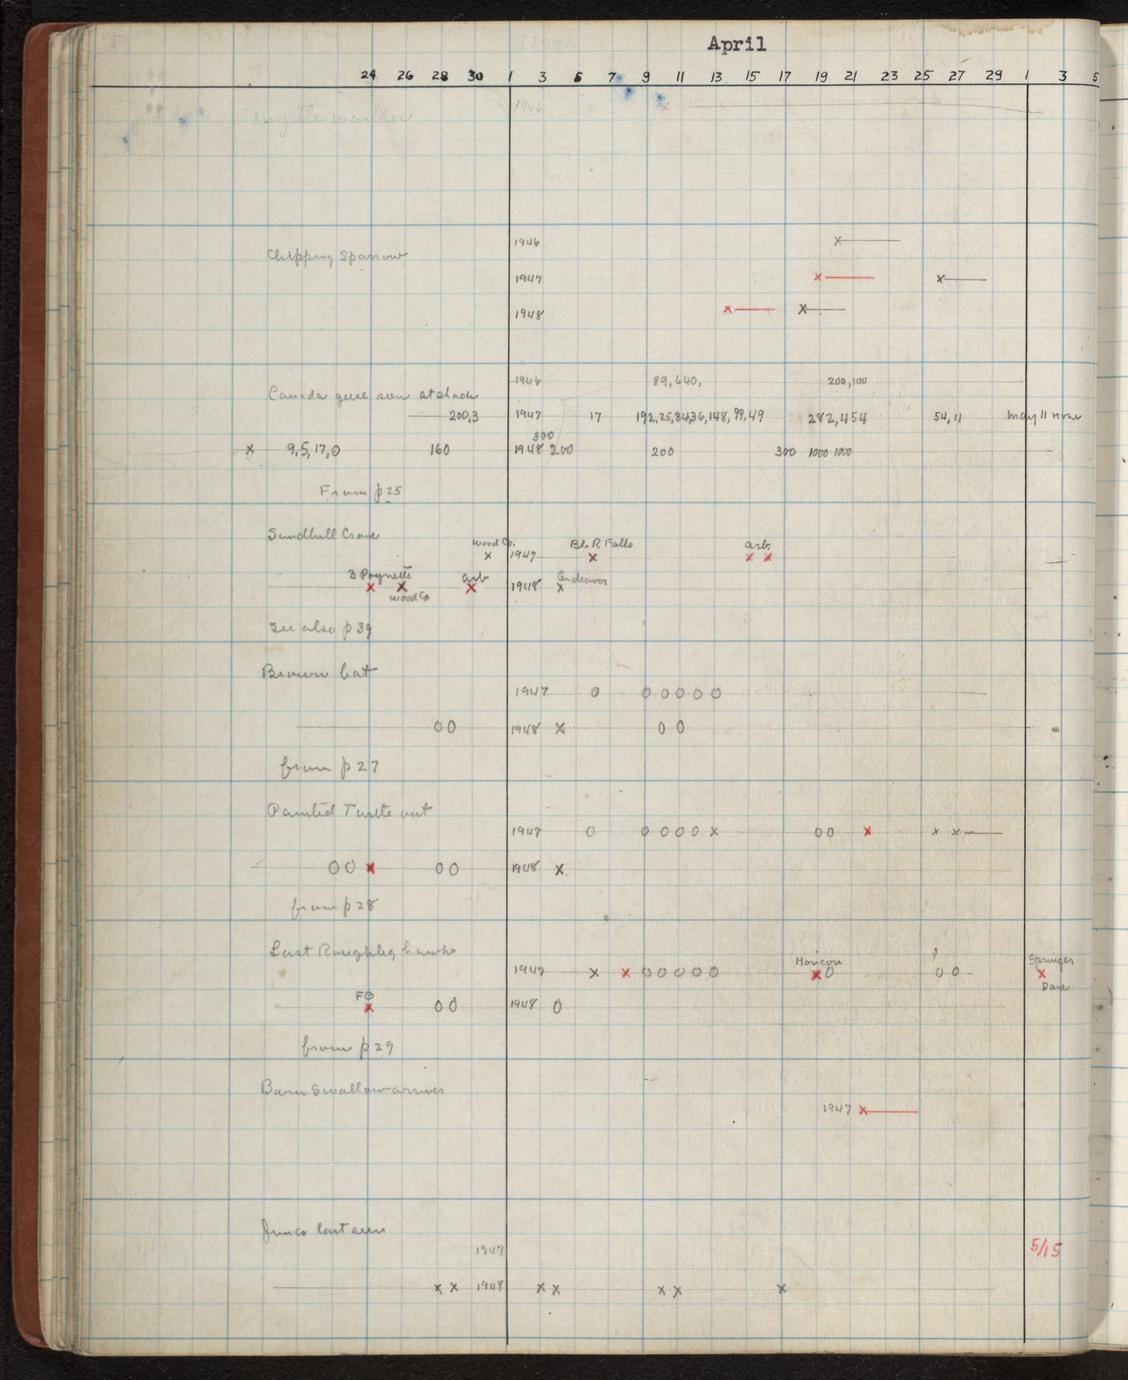 April
24 26 28 30 1 3 5 7 9 11 13 15 17 19 21 23 25 27 29 1 3 5
1946 x
Chipping Sparrow
1946 x
1947 x x
1948 x x
Canada geese seen at shack
1946 89,640, 200,100
200,3 1947 17 192,25,34,36,148,99,49 282,454 54,11 May 11 none
300
x 9,5,17,0 160 1948 200 200 300 1000 1000
From p25
Sandhill Crane
Wood Co. Bl. R Falls arb.
x 1947 x x x
3 Poynette arb Endeavor
x x x 1948 x
Wood Co
See also p 39
Brown bat
1947 0 0 0 0 0 0
0 0 1948 x 0 0
from p 27
Painted Turtle out
1947 0 0 0 0 0 x 0 0 x x x
0 0 x 0 0 1948 x
from p 28
Last Roughleg hawk
Horicon ? Springer
1947 x x 0 0 0 0 0 x 0 0 0 x
Dane
x 0 0 1948 0
from p 29
Barn Swallow arrives
1947 x
Junco last seen
1947 5/15
x x 1948 x x x x x